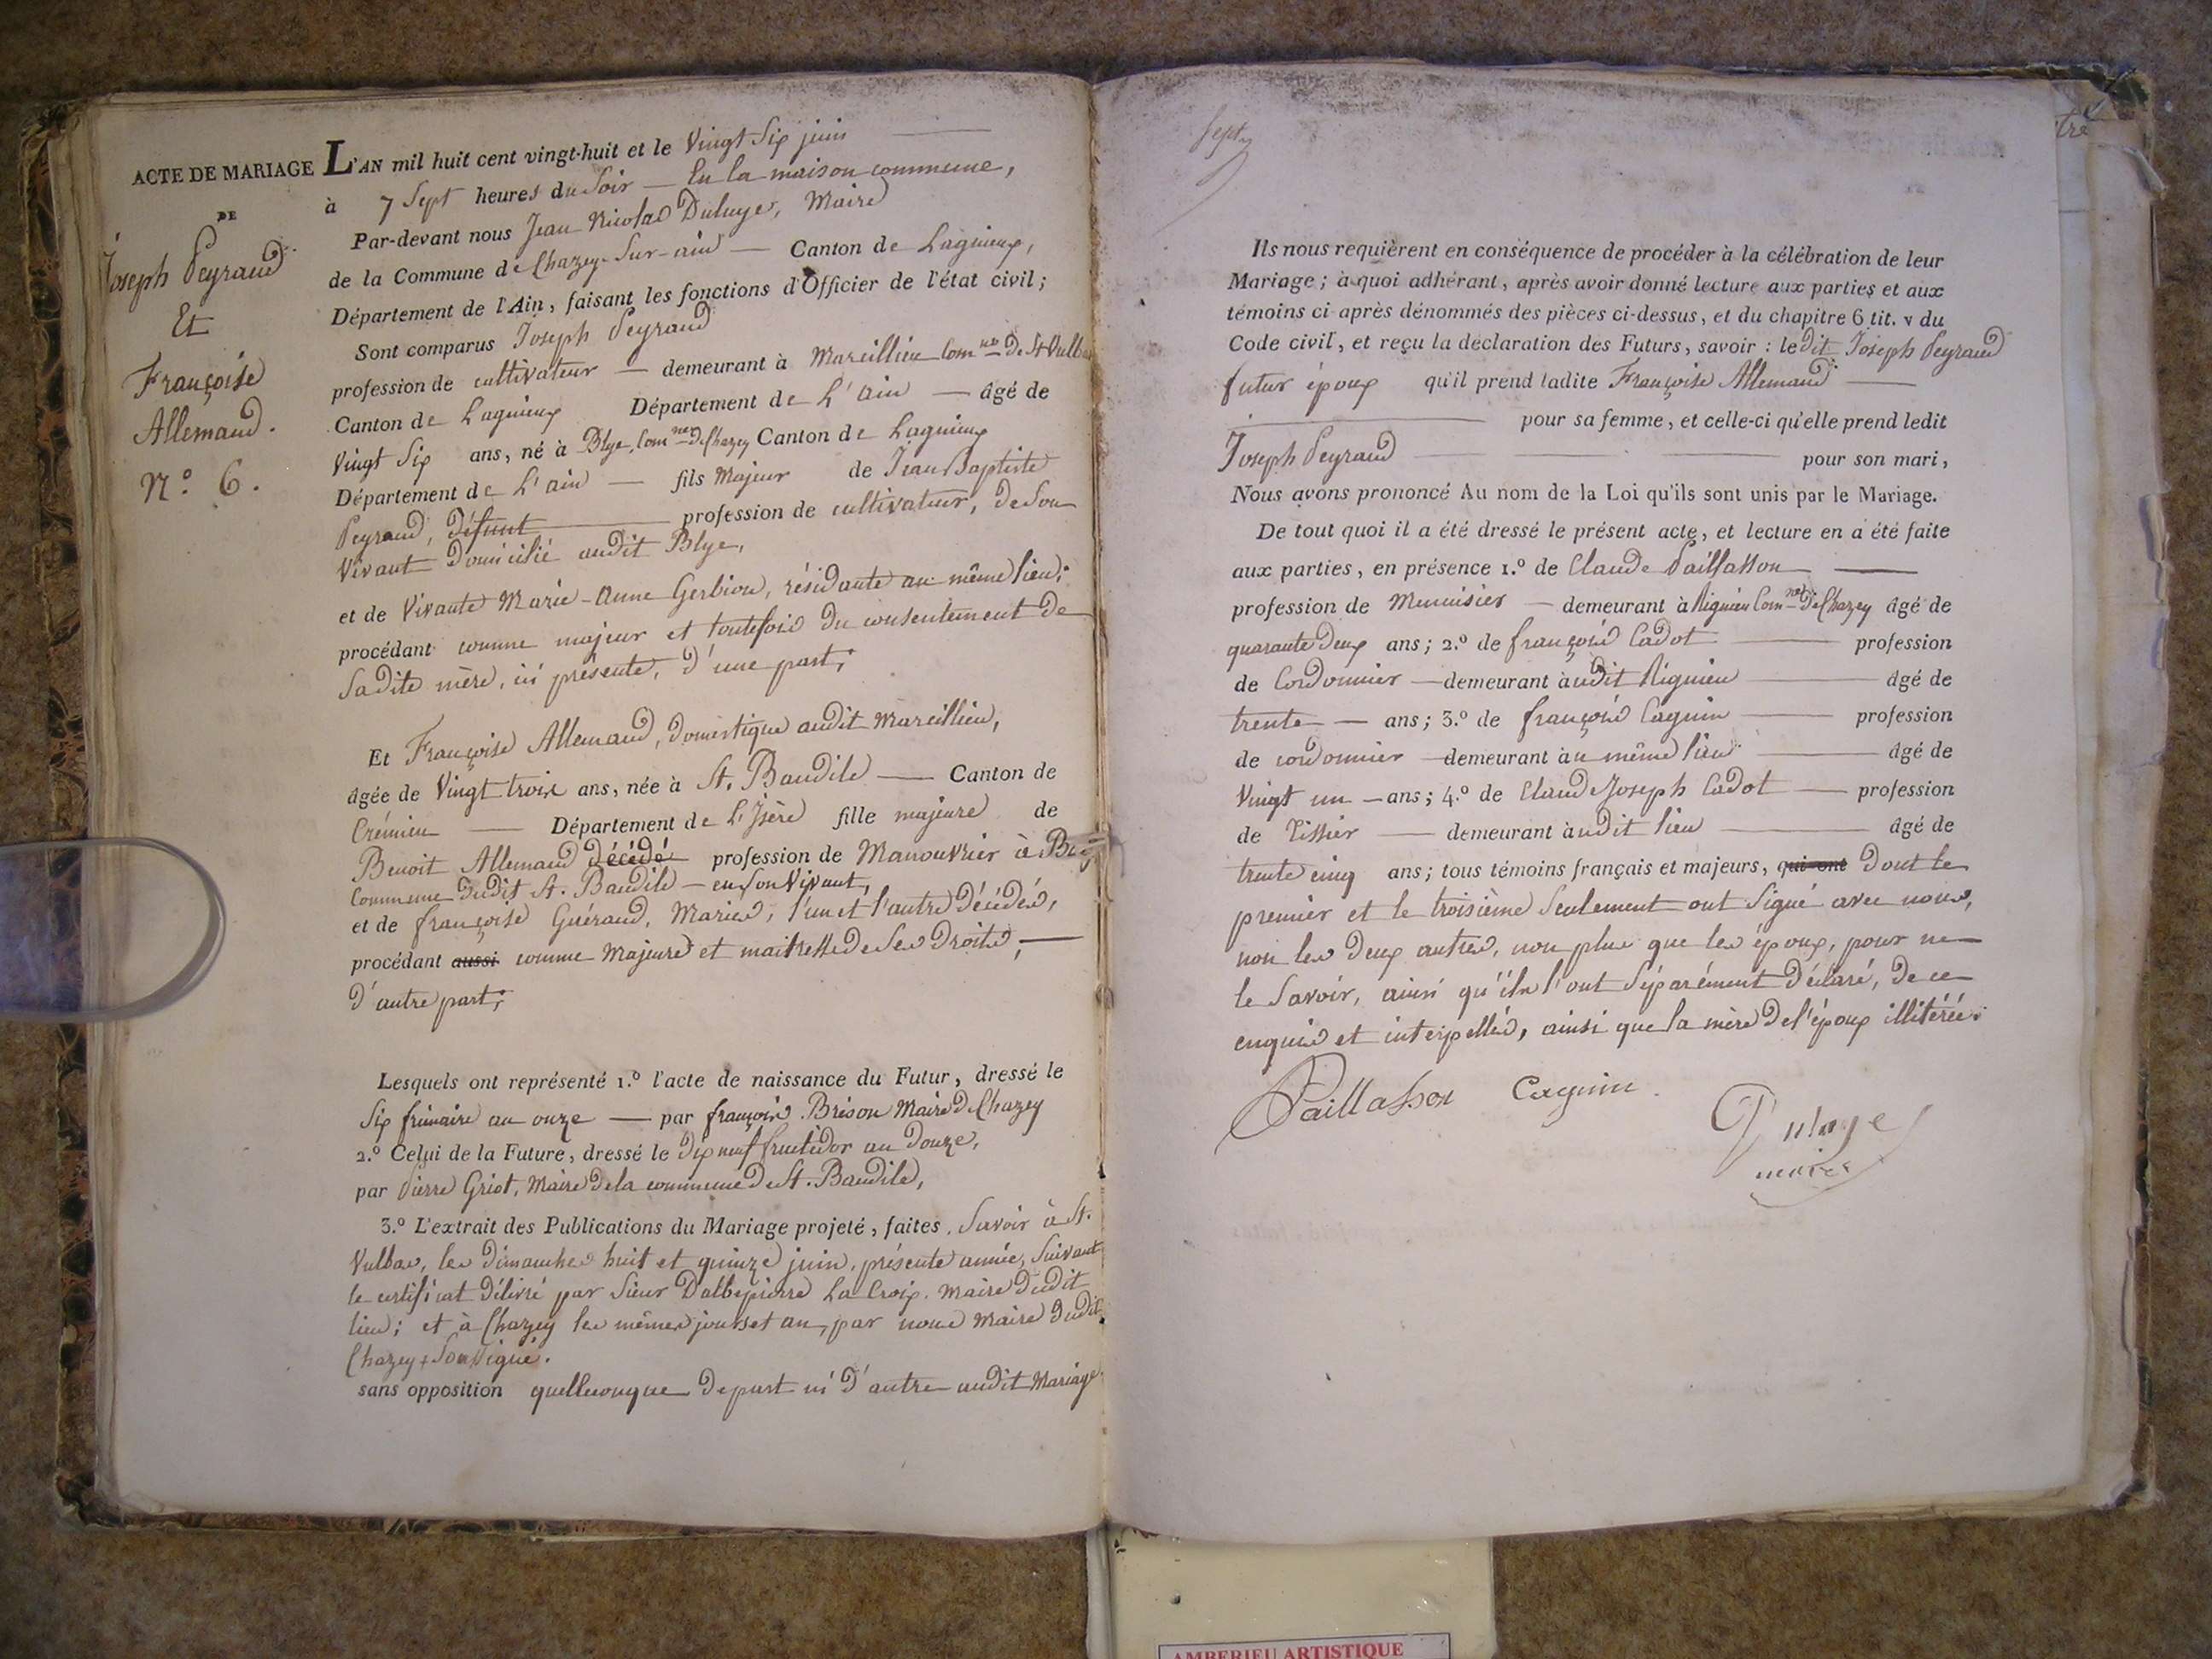 ACTE DE MARIAGE
DE
Joseph Peyraud
Et
Françoise
Allemand.
N.º 6.
L'AN mil huit cent vingt-huit et le Vingt Six juin
à 7 Sept heures du Soir — En la maison commune,
Par-devant nous Jean Nicolas Duluye, Maire
de la Commune de Chazey-Sur-ain — Canton de Lagnieux,
Département de l'Ain, faisant les fonctions d'Officier de l'état civil;
Sont comparus Joseph Peyraud
profession de cultivateur — demeurant à Marcillieu Com.ne De St Vulbas
Canton de Lagnieux Département de L'ain — âgé de
Vingt Six ans, né à Blye, Com.ne de Chazey Canton de Lagnieux
Département de L'ain — fils Majeur de Jean Baptiste
Peyraud, Défunt — profession de cultivateur, de Son
Vivant Domicilié audit Blye,
et de Vivante Marie-Anne Gerbion, résidante au même lieu;
procédant comme majeur et toutefois du consentement de
Sadite mère, ici présente, d'une part;
Et Françoise Allemand, domestique audit Marcillieu,
âgée de Vingt trois ans, née à St. Baudile — Canton de
Crémieu — Département de L'Isère fille majeure de
Benoit Allemand décédé profession de Manouvrier à
Commune dudit St. Baudile — en Son Vivant,
et de françoise Guéraud, Mariés, l'un et l'autre Décédés,
procédant aussi comme Majeure et maitresse de Ses Droits, —
D'autre part;
Lesquels ont représenté 1.º l'acte de naissance du Futur, dressé le
Six frimaire an onze — par françois Brison Maire de Chazey
2.º Celui de la Future, dressé le Dix neuf fructidor an Douze,
par Pierre Griot, Maire de la commune de St. Baudile,
3.º L'extrait des Publications du Mariage projeté, faites, Savoir à St.
Vulbas, les Dimanches huit et quinze juin, présente année, Suivant
le certificat Délivré par Sieur Dalbepierre La Croix, Maire dudit
lieu; et à Chazey les mêmes jours et an, par nous Maire dudit
Chazey, Soussigné.
sans opposition quelleconque de part ni d'autre audit Mariage.
Sept
Ils nous requièrent en conséquence de procéder à la célébration de leur
Mariage; à quoi adhérant, après avoir donné lecture aux parties et aux
témoins ci après dénommés des pièces ci-dessus, et du chapitre 6 tit. v du
Code civil, et reçu la déclaration des Futurs, savoir : le dit Joseph Peyraud
futur époux qu'il prend ladite Françoise Allemand —
— pour sa femme, et celle-ci qu'elle prend ledit
Joseph Peyraud — pour son mari,
Nous avons prononcé Au nom de la Loi qu'ils sont unis par le Mariage.
De tout quoi il a été dressé le présent acte, et lecture en a été faite
aux parties, en présence 1.º de Claude Paillasson —
profession de Menuisier — demeurant à Rignieu Com.ne de Chazey âgé de
quarante Deux ans; 2.º de françois Cadot — profession
de Cordonnier — demeurant audit Rignieu — âgé de
trente — ans; 3.º de françois Caguin — profession
de cordonnier — demeurant au même lieu — âgé de
Vingt un — ans; 4.º de Claude Joseph Cadot — profession
de Tissier — demeurant audit lieu — âgé de
trente cinq ans; tous témoins français et majeurs, qui ont Dont le
premier et le troisième Seulement ont Signé avec nous,
non les Deux autres, non plus que les époux, pour ne
le Savoir, ainsi qu'ils l'ont Séparément Déclaré, de ce
enquis et interpellés, ainsi que la mère de l'époux illitérée.
Paillasson Caguin
Duluye
maire
AMBERIEU ARTISTIQUE